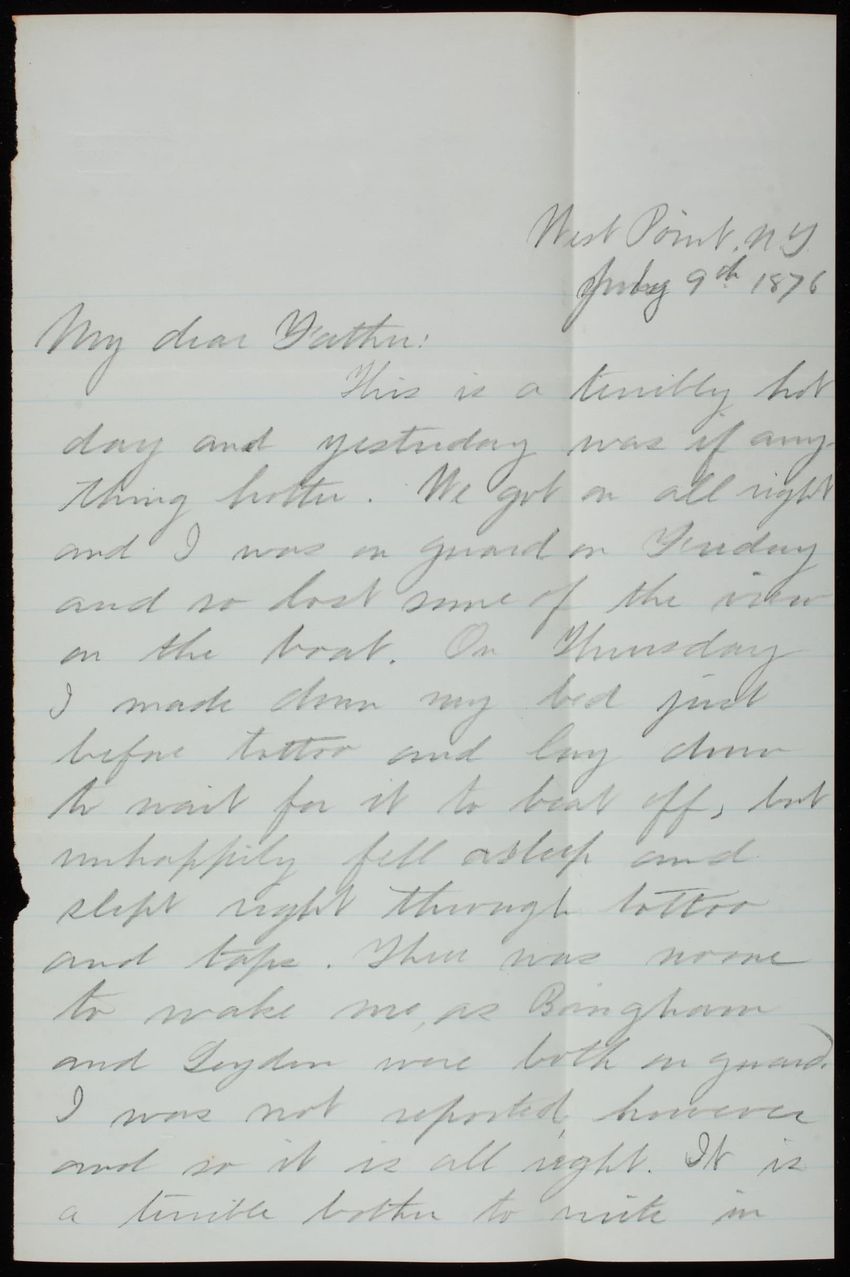 West Point, N.Y.
July 9th 1876
My dear Father:
This is a terribly hot
day and yesterday was if any-
thing hotter. We got on all right
and I was on guard on Friday
and so lost some of the view
on the boat. On Thursday
I made down my bed just
before tattoo and lay down
to wait for it to beat off, but
unhappily fell asleep and
slept right through tattoo
and taps. There was no one
to wake me, as Bingham
and Leyden were both on guard.
I was not reported, however
and so it is all right. It is
a terrible bother to write in